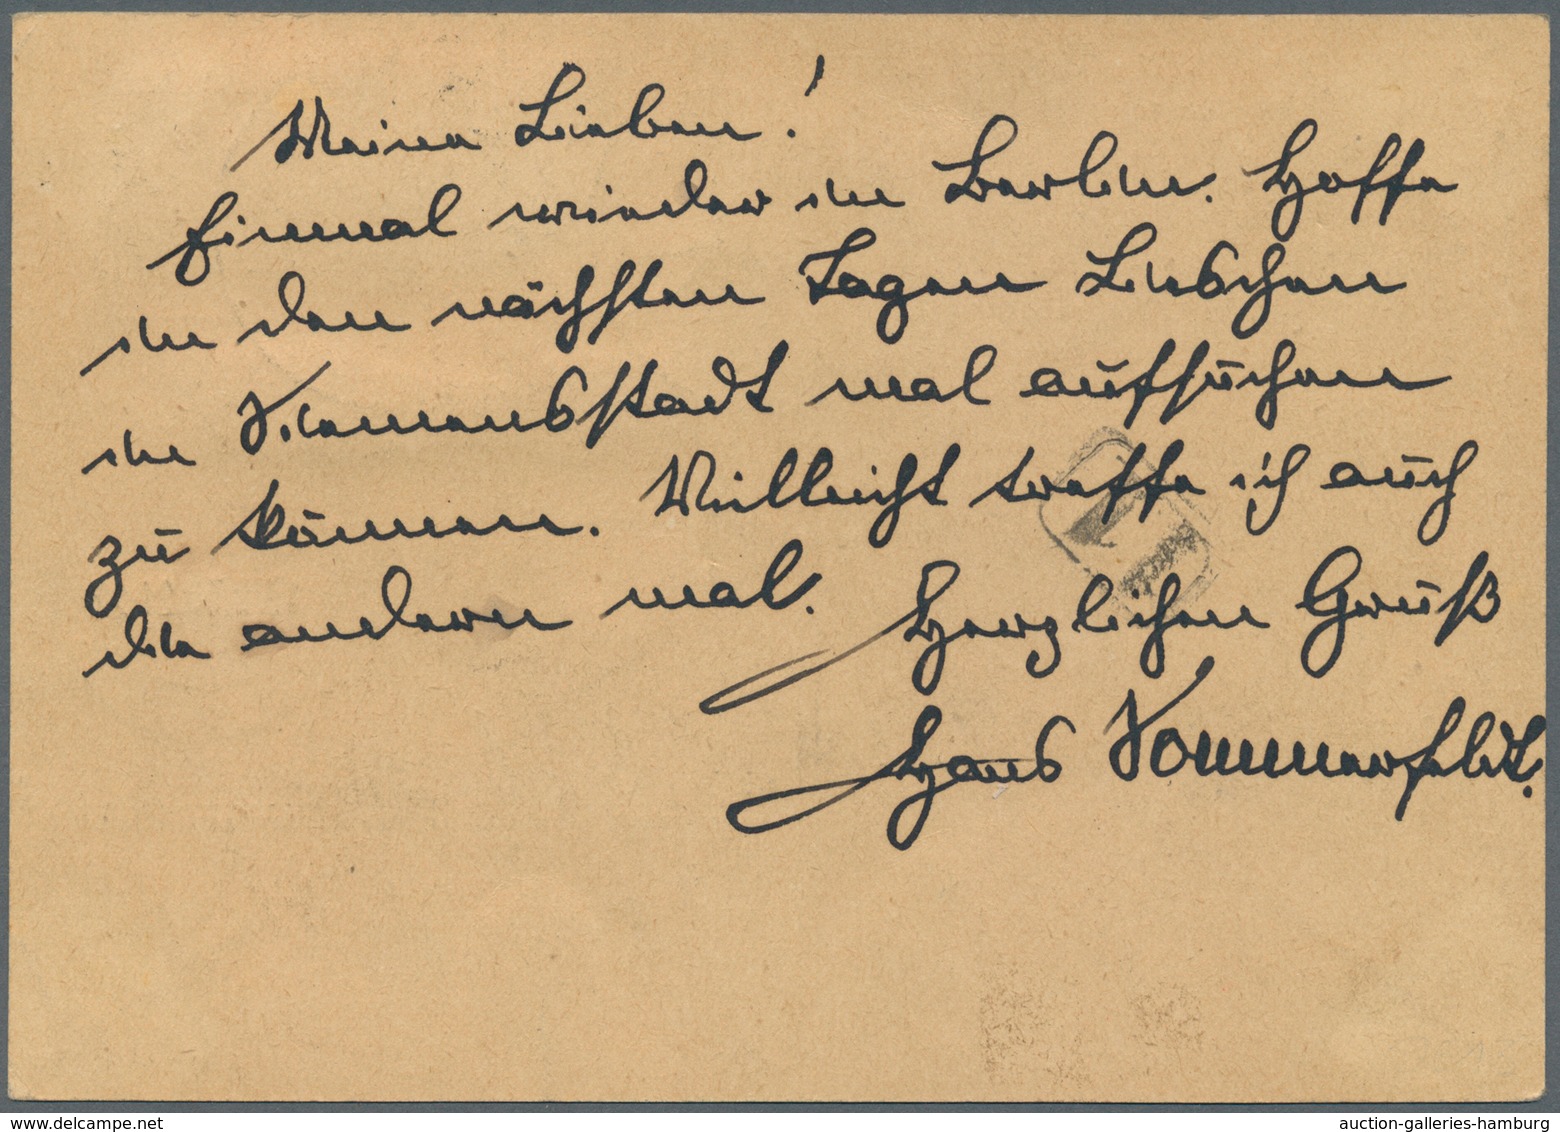 Meine Lieben!
Einmal wieder in Berlin. Hoffe
in den nächsten Tagen Lieschen
in Siemensstadt mal aufsuchen
zu können. Vielleicht treffe ich auch
die andern mal.
Herzlichen Gruß
Hans Sommerfeldt.
auction-galleries-hamburg